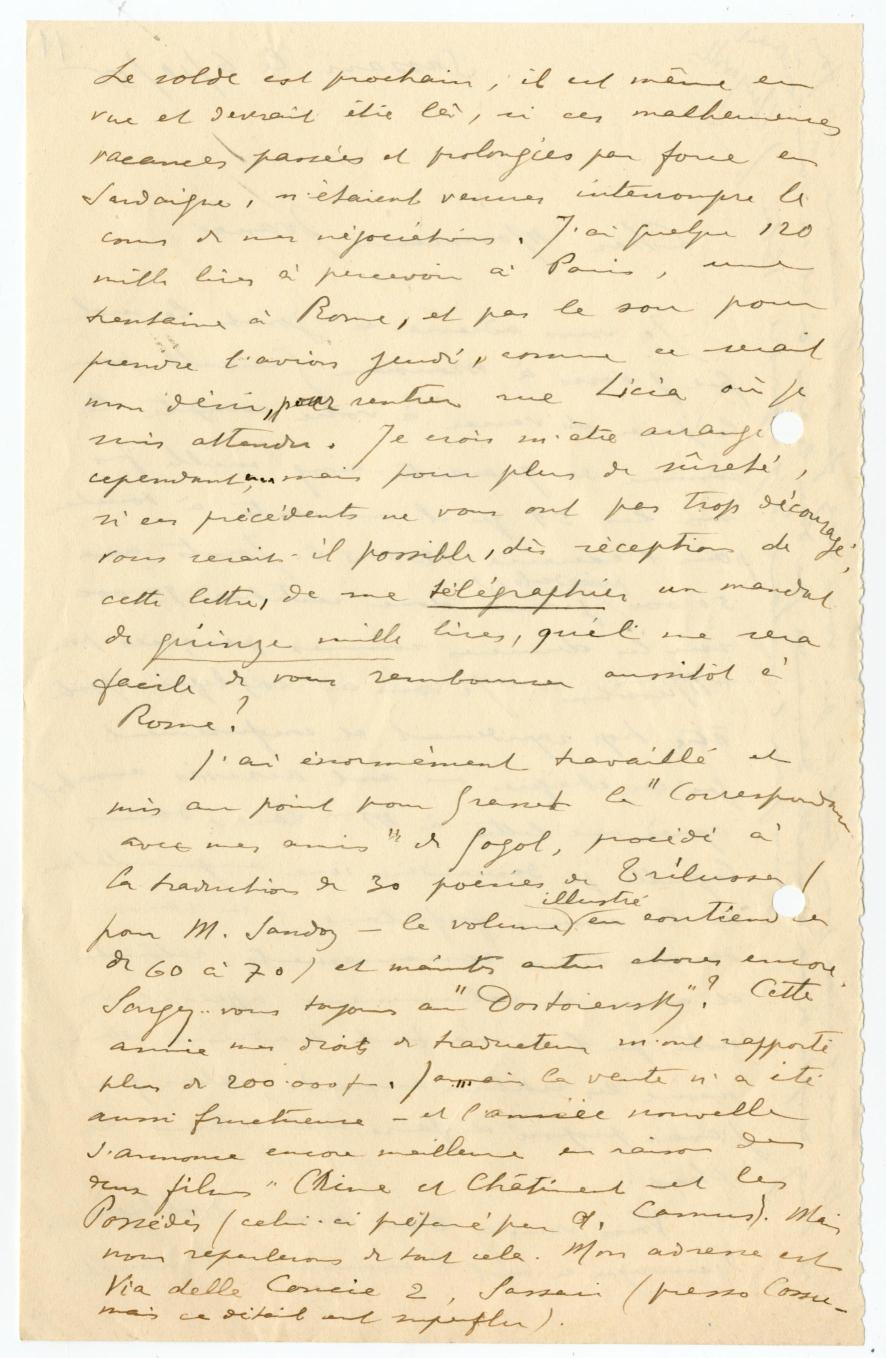 Le solde est prochain, il est même en
vue et devrait être là, si ces malheureuses
vacances passées et prolongées par force en
Sardaigne, n'étaient venues interrompre le
cours de mes négociations. J'ai quelque 120
mille lires à percevoir à Paris, une
trentaine à Rome, et pas le sou pour
prendre l'avion jeudi, comme ce serait
mon désir, pour rentrer rue Licia où je
suis attendu. Je crois m'être arrangé
cependant, mais pour plus de sûreté,
si ces précédents ne vous ont pas trop découragé,
vous serait-il possible, dès réception de
cette lettre, de me télégraphier un mandat
de quinze mille lires, qu'il me sera
facile de vous rembourser aussitôt à
Rome?
J'ai énormément travaillé et
mis au point pour Grasset la "Correspondance
avec mes amis" de Gogol, procédé à
la traduction de 30 poésies de Trilussa (
illustré
pour M. Sandoz – le volume en contiendra
de 60 à 70) et maintes autres choses encore.
Songez-vous toujours au "Dostoïevsky"? Cette
année mes droits de traducteur m'ont rapporté
plus de 200.000 fr. Jamais la vente n'a été
aussi fructueuse – et l'année nouvelle
s'annonce encore meilleure en raison des
deux films "Crime et Châtiment – et les
Possédés (celui-ci préfacé par A. Camus). Mais
nous reparlerons de tout cela. Mon adresse est
Via delle Concie 2, Sassari (presso Cossu –
mais ce détail est superflu).